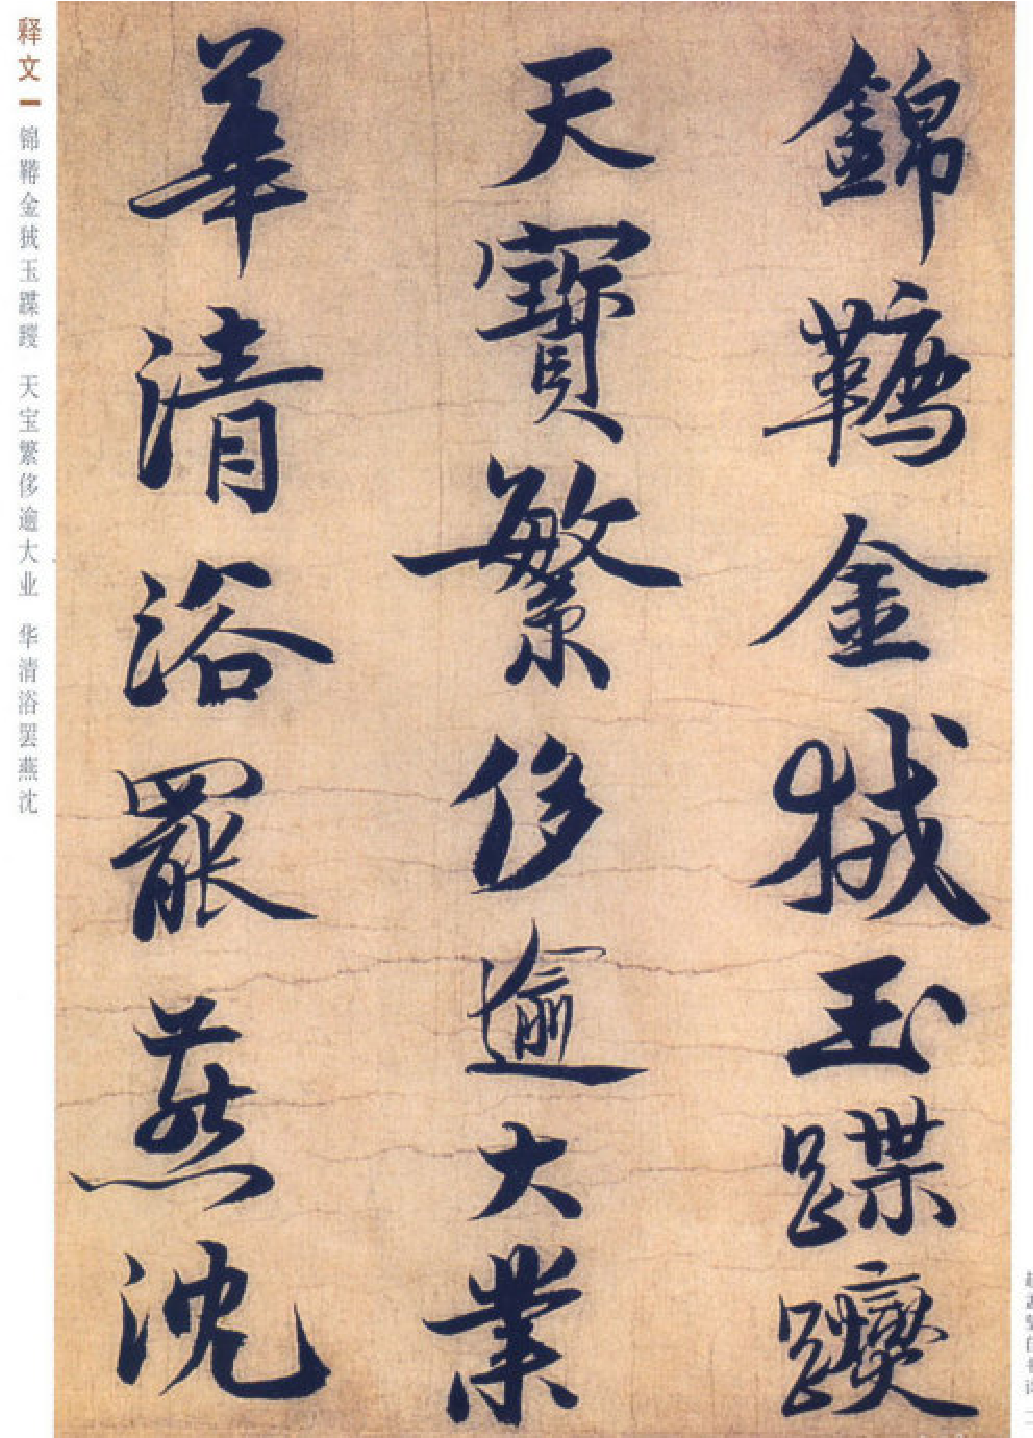 錦韉金
玉蹀躞
天寶繁侈逾大業
華清浴罷燕沈
释文
锦鞯金
玉蹀躞 天宝繁侈逾大业 华清浴罢燕沈